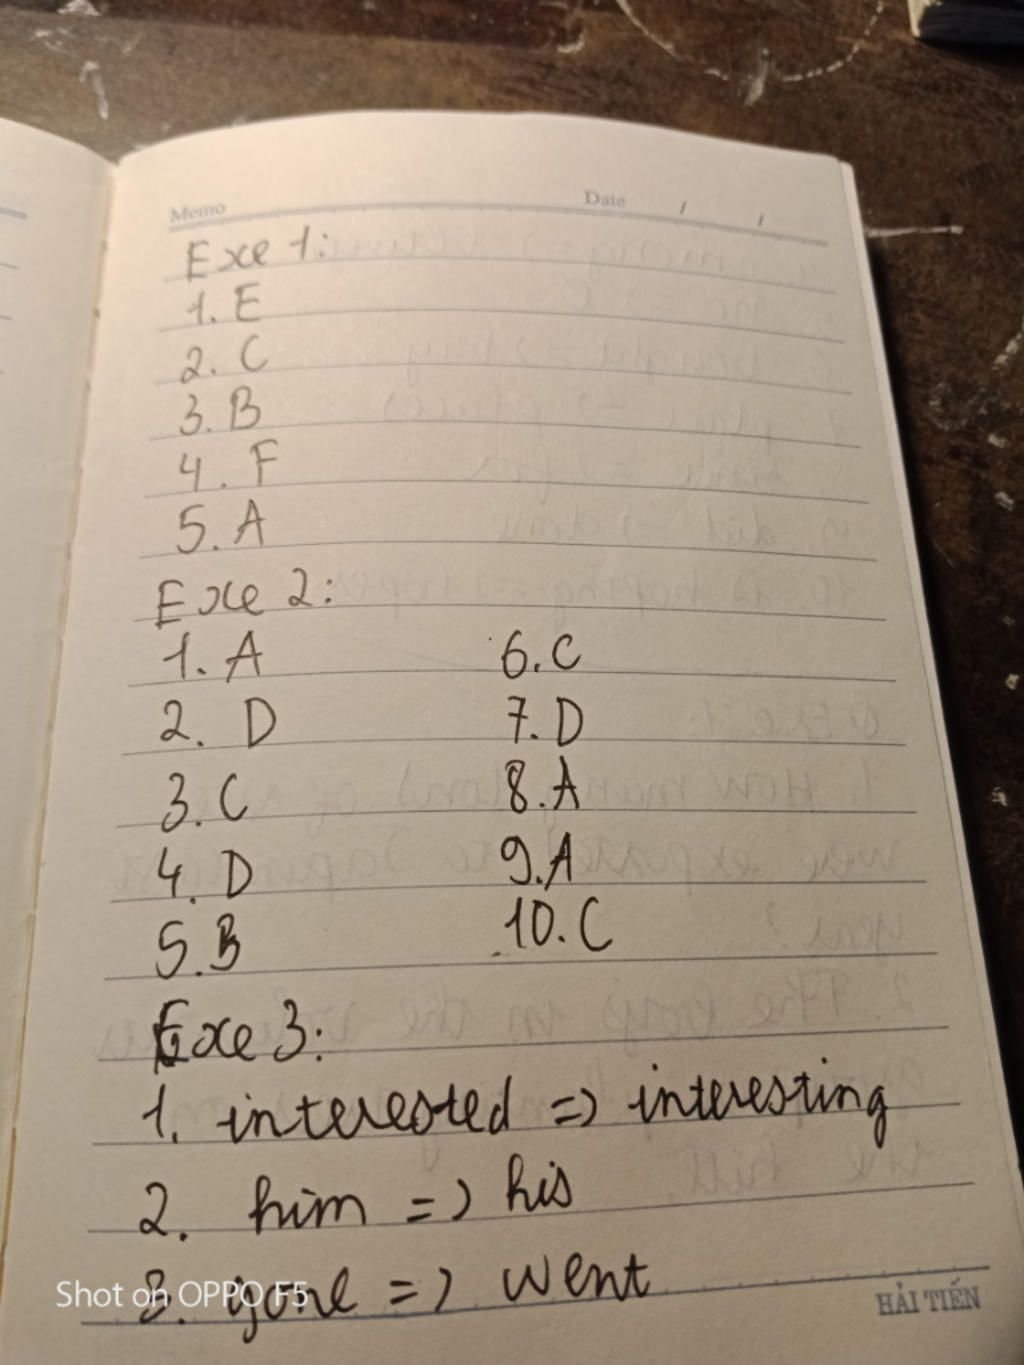 Memo Date / /
Exe 1:
1. E
2. C
3. B
4. F
5. A
Exe 2:
1. A 6. C
2. D 7. D
3. C 8. A
4. D 9. A
5. B 10. C
Exe 3:
1. interested => interesting
2. him => his
3. gone => went
Shot on OPPO F5
HẢI TIẾN